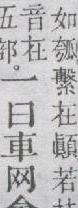 如瓠繫在顛若
音在
五部。一曰車网